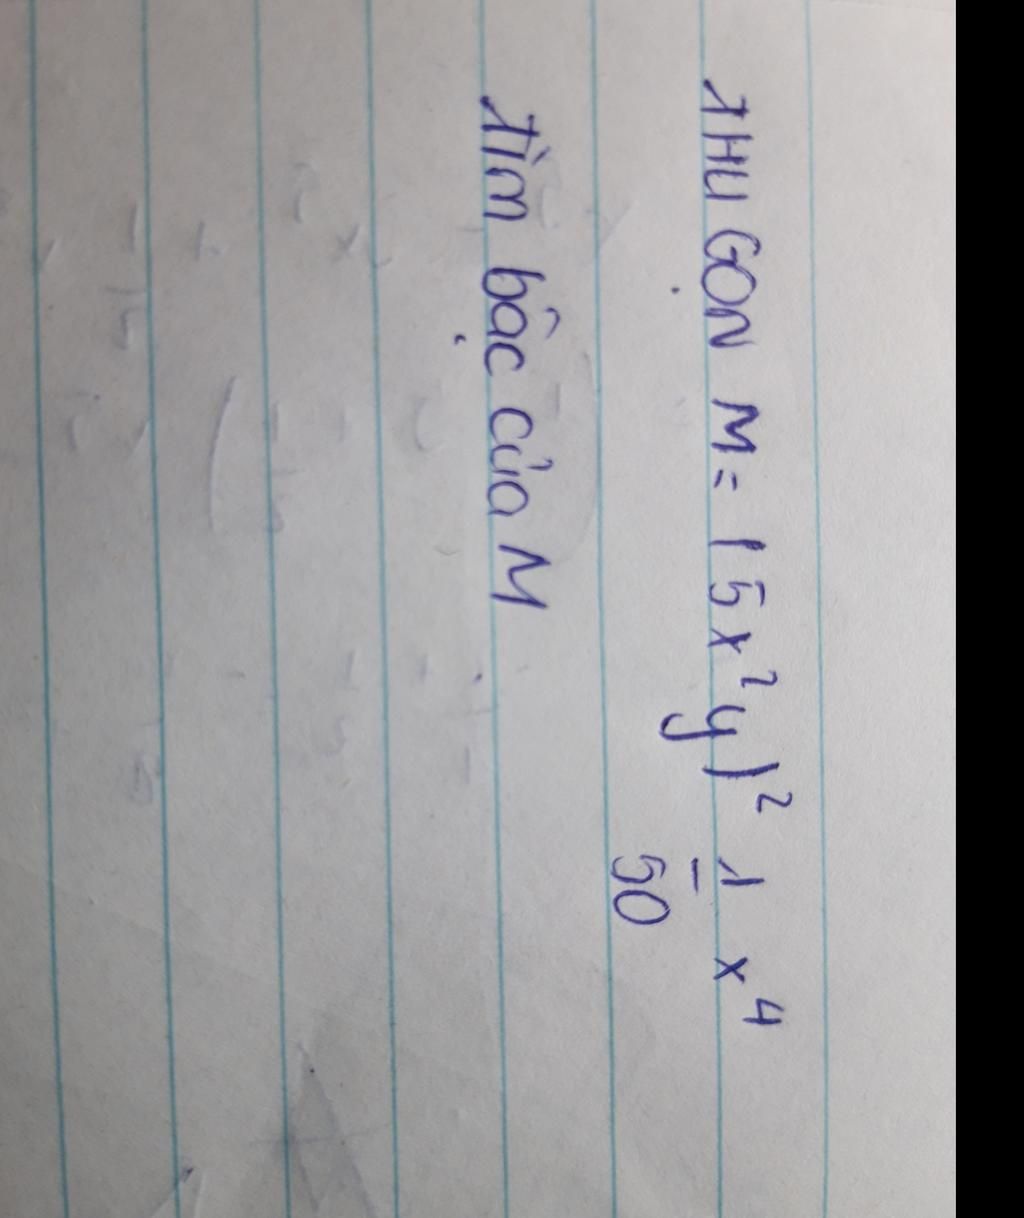 THU GỌN M = (5x²y)² 1/50 x⁴
Tìm bậc của M